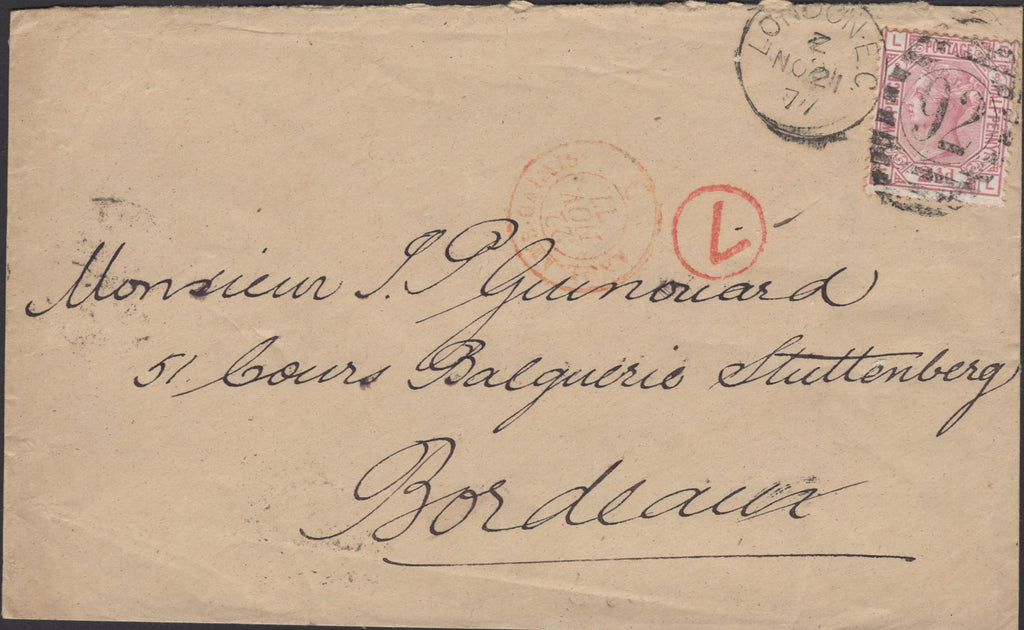 LONDON·E.C
Z
NO 21
77
92
L POSTAGE
L
CALAIS
1
Monsieur J. P. Guinouard
51. Cours Balguerie Stuttenberg
Bordeaux